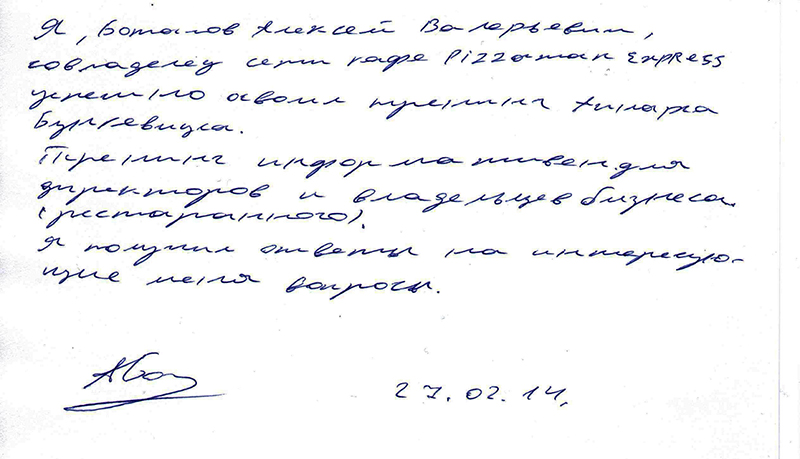 Я, Боталов Алексей Валерьевич,
совладелец сети кафе Pizzaman Express
успешно освоил тренинг Айнарса
Бунгевицка.
Тренинг информативен для
директоров и владельцев бизнеса
(ресторанного).
Я получил ответы на интересую-
щие меня вопросы.
27.02.14.